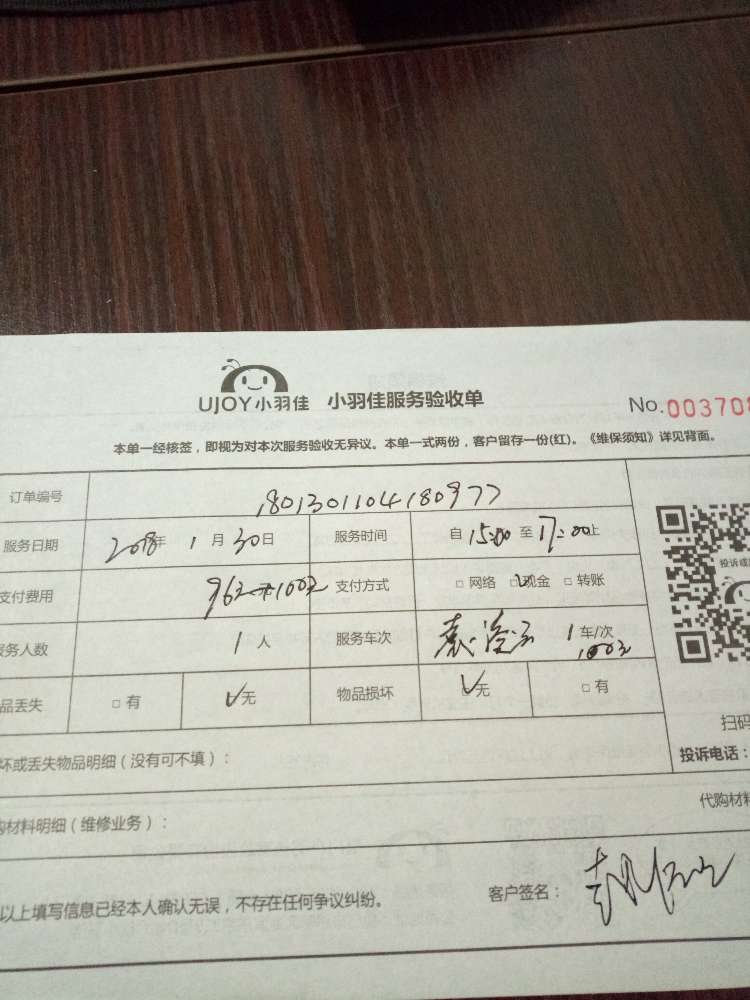 UJOY小羽佳 小羽佳服务验收单 No.003708
本单一经核签，即视为对本次服务验收无异议。本单一式两份，客户留存一份(红)。《维保须知》详见背面。
订单编号 1801301104180977
服务日期 2018年 1月30日 服务时间 自 15:00 至 17:00止
支付费用 962+100元 支付方式 □ 网络 ☑现金 □ 转账
服务人数 1 人 服务车次 1 车/次
100元
品丢失 □ 有 ☑无 物品损坏 ☑无 □ 有
坏或丢失物品明细（没有可不填）：
购材料明细（维修业务）： 代购材料
以上填写信息已经本人确认无误，不存在任何争议纠纷。 客户签名：
投诉或
扫码
投诉电话：